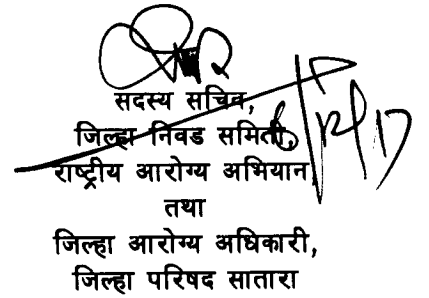 सदस्य सचिव,
जिल्हा निवड समिती,
राष्ट्रीय आरोग्य अभियान
तथा
जिल्हा आरोग्य अधिकारी,
जिल्हा परिषद सातारा